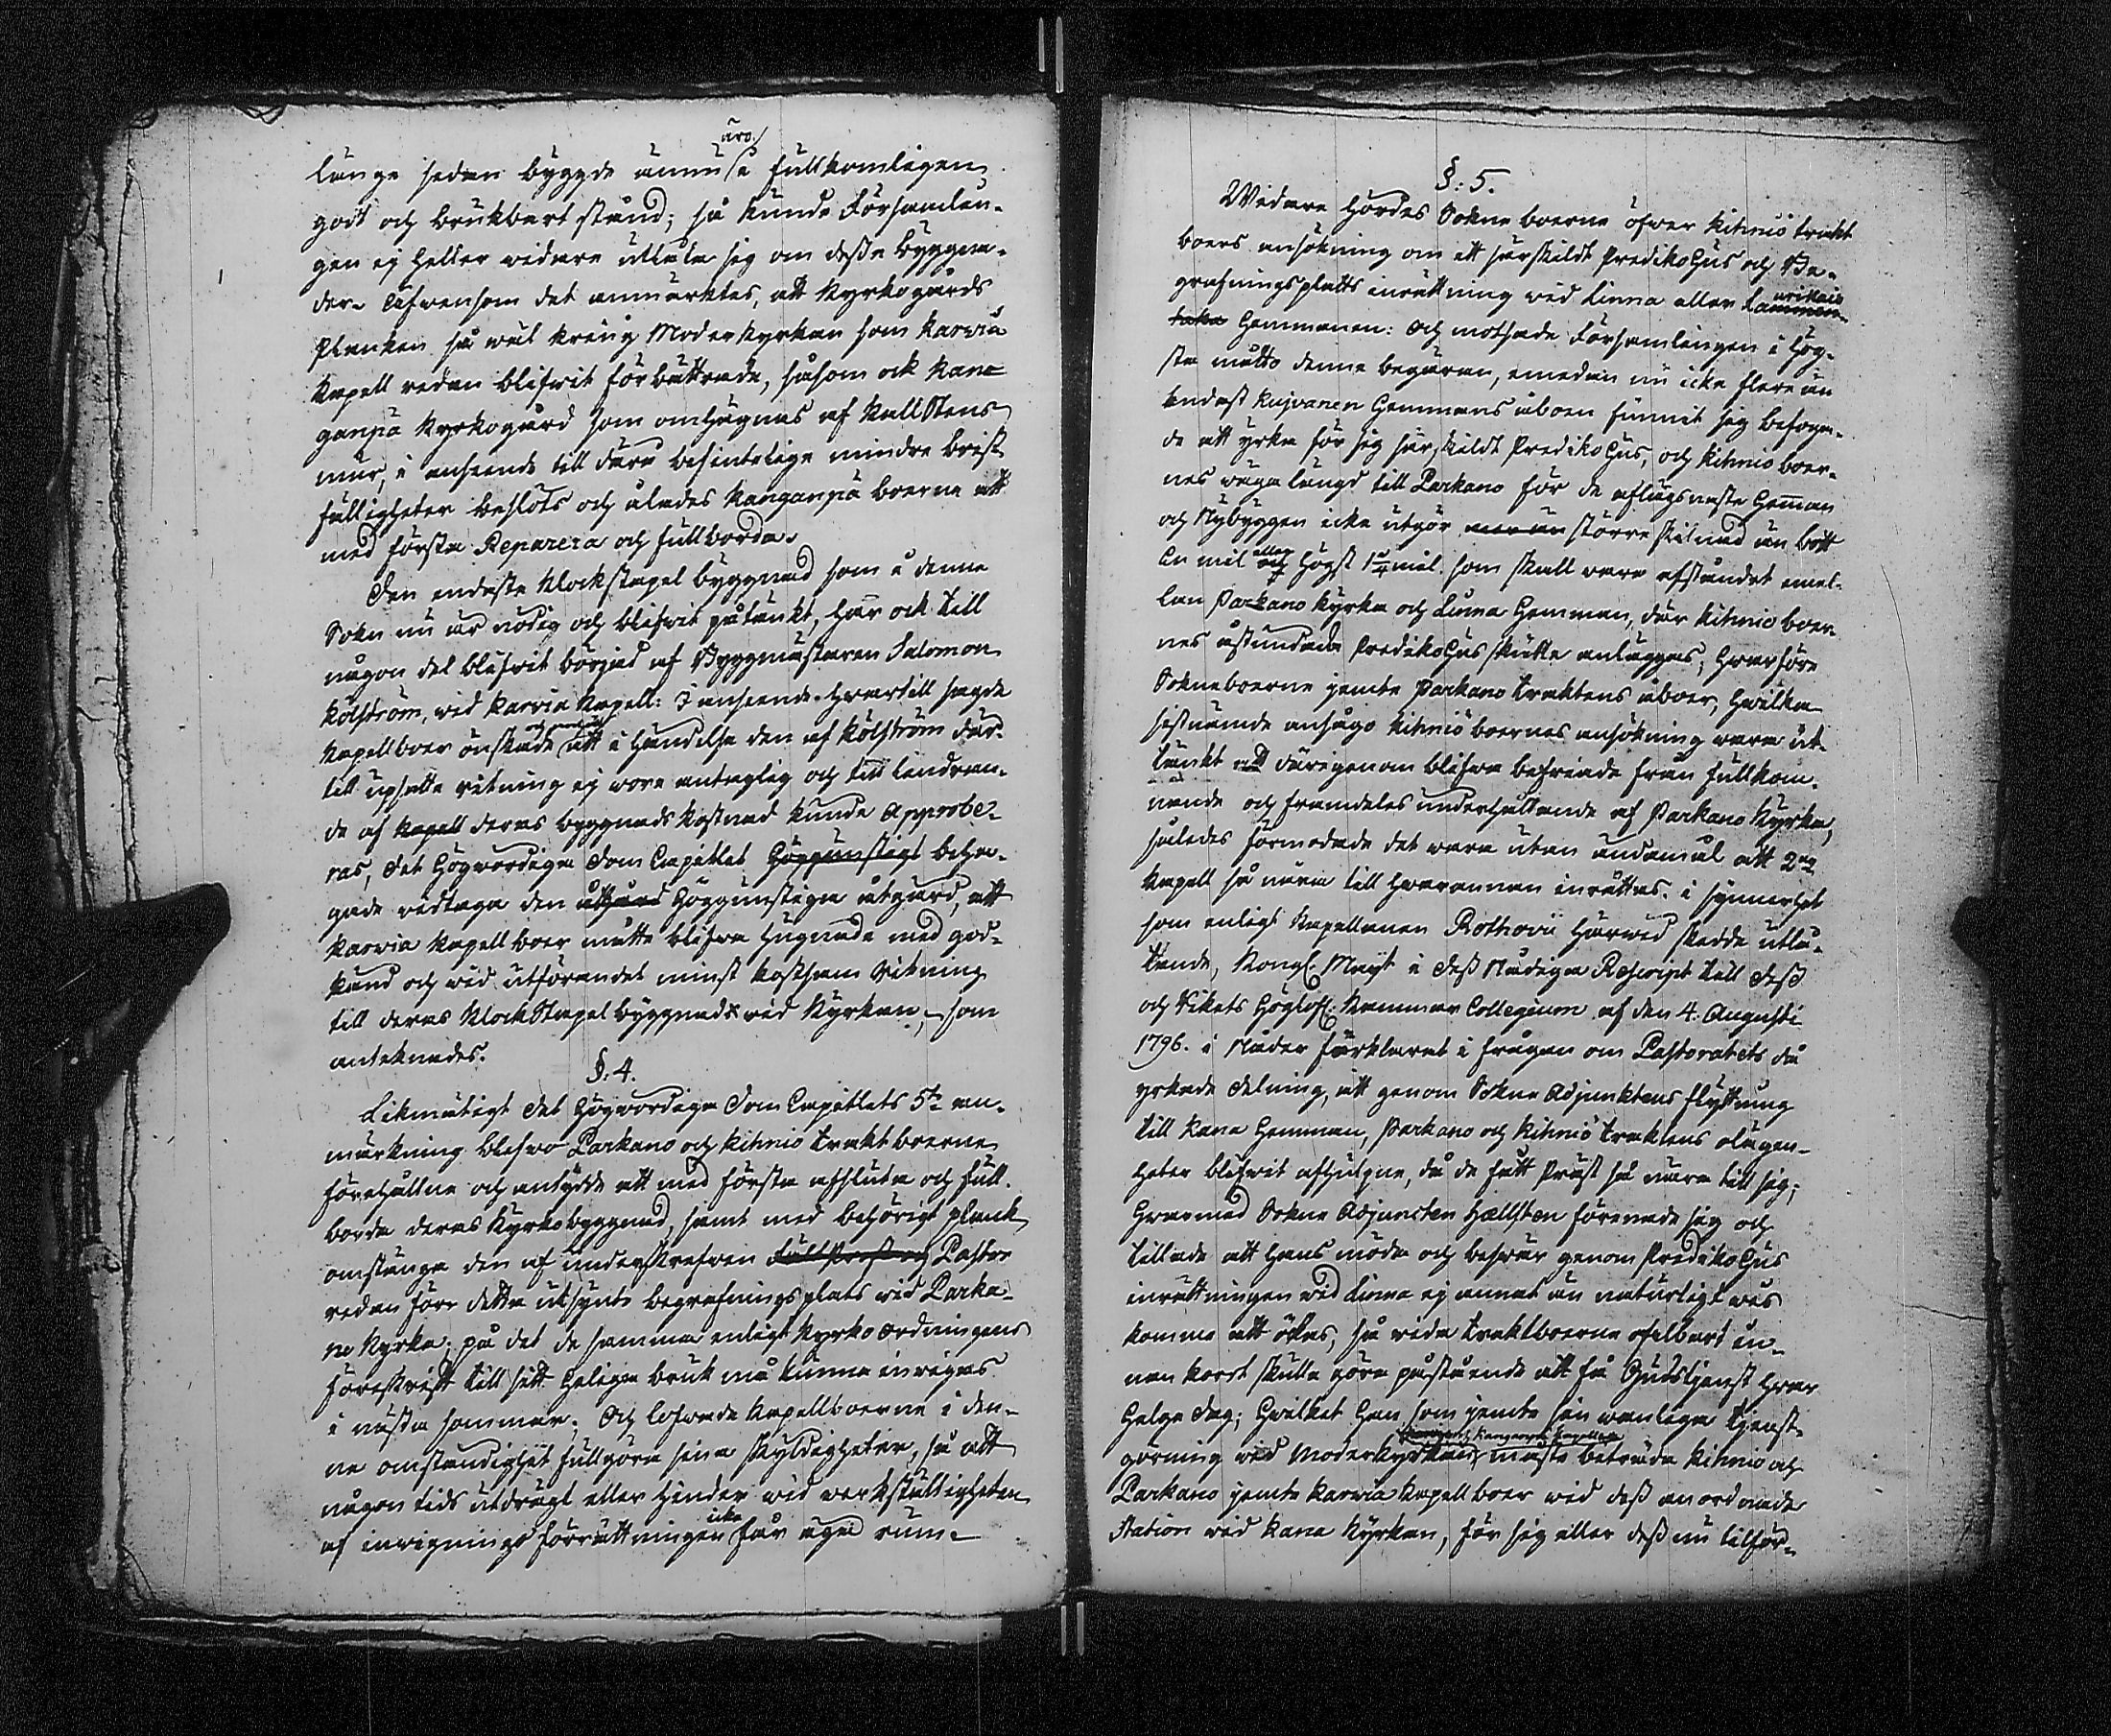 länge sedan bygde ännu äro i fullkomligen
godt och brukbart stånd; så kunde Församlin-
gen ej heller widare utlåta sig om dessa byggna-
der. Äfwensom det anmärktes, att Kyrkogårds
Planken så wäl kring Moderkyrkan som Karwia
Kapell redan blifwit förbättrade, såsom ock Kan-
ganpä Kyrkogård som omhägnas af Kall Stens
mur, i anseende till dära befinteliga mindre brist-
fälligheter beslöts och ålades Kanganpä boerne att
med första Reparera och fullborda.
Den endaste Klockstapel byggnad som i denna
Sokn nu är nödig och blifwit påtänkt, har ock till
någon del blifwit börjad af Byggmästaren Salomon
Kölström, wid Karvia Kapell: I anseende hwartill sagde
Kapellboer önskade att i händelse den af Kölström där-
till upsatte ritning ej wore antaglig och till lindran-
de af Kapell deras byggnads kostnad kunde Approbe-
ras, det Högwördiga Dom Capitlet Höggunstigt beha-
gade widtaga den åtgärd Höggunstiga utgärd, att
Karvia Kapellboer måtte blifwa hugnade med god-
känd och wid utförandet minst kostsam Ritning
till deras Klock Stapel byggnad wid Kyrkan; som
anteknades.
§. 4.
Likmätigt det Högwördiga Dom Capitlets 5te an-
märkning blefwo Parkano och Kihniö trakt boerne
förehållne och antydde att med första afsluta och full-
borda deras Kyrkobyggnad, samt med behörigt plank
omstänga den af underskrefwen Pastor
redan före detta utsynte begrafnings plats wid Parka-
no Kyrka; på det de samma enligt Kyrko ordningens
föreskrift till sitt heliga bruk må kunna inwigas
i nästa sommar; Och lofwade Kapellboerne i den-
na omständighet fullgöra sina skyldigheter, så att
någon tids utdrägt eller hinder wid werkställigheten
af inwignings förrättningen icke får äga rum.
§. 5.
Widare hördes Sokne boerne öfwer Kihniö trakt
boers ansökning om ett särskildt Predikohus och Be-
grafningsplatts inrättning wid Linna eller
Hemmanen: Och motsade Församlingen i hög-
sta måtto denna begäran, emedan nu icke flere än
endast Kujvanen Hemmans åboen funnit sig befogen-
de att yrka för sig särskildt Predikohus, och Kihniö boer-
nes wäga längd till Parkano för de aflägsnaste Heman
och Nybyggen icke utgör mer än större skilnad än bått
en mil eller högst 1¼ mil. som skall wara afståndet emel-
lan Parkano Kyrka och Linna Hemman, där Kihniö boer-
nes åstundade Predikohus skulle anläggas; Hwarföre
Sokneboerne jemte Parkano traktens åboer, hwilka
sistnämde ansågo Kihniö boernes ansökning wara ut-
tänkt at därigenom blifwa befriade från fullkom-
nande och framdeles underhållande af Parkano Kyrka,
således förmodade det wara utan ändamål att 2ne
Kapell så nära till hwarannan inrättas. i synnerhet
som enligt Kapellanen Rothovii härwid skedde utlå-
tande, Kongl. Majt i dess Nådiga Rescript till dess
och Rikets Höglofl. Kammar Collegium af den 4. Augusti
1796. i Nåder förklarat i frågan om Pastoratets då
yrkade delning, att genom Sokne Adjunktens flyttning
till Kana Hemman, Parkano och Kihniö traktens olägen-
heter blifwit afhulpne, då de fått Präst så nära till sig;
Hwarmed Sokne Adjuncten Hællsten förenade sig och
tillade att hans möda och beswär genom Predikohus
inrättningen wid Linna ej annat än naturligt wis
komme att ökas, så wida traktboerne ofelbart in-
nan kort skulle göra påstående att få Gudstjenst hwar
helge dag; hwilket han som jemte sin wanliga tjenst-
göring wid Moderkyrkan måste beträda Kihniö och
Parkano jemte Karvia Kapellboer wid dess anordnade
Station wid Kana Kyrkan, för sig eller dess nu tilför-